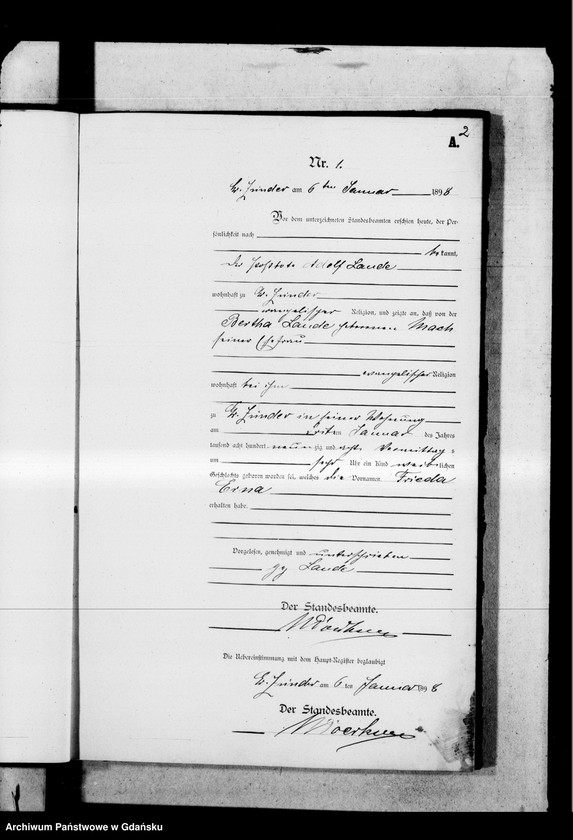 2
A.
Nr. 1.
Gr. Zünder am 6ten Januar 1898
Vor dem unterzeichneten Standesbeamten erschien heute, der Per-
sönlichkeit nach
bekannt,
der Adolf Lande
wohnhaft zu Gr. Zünder
evangelischer Religion, und zeigte an, daß von der
Bertha Lande geborenen Mach
seiner Ehefrau
evangelischer Religion
wohnhaft bei ihm
zu Gr. Zünder in seiner Wohnung
am ten Januar des Jahres
tausend acht hundert neunzig und acht Vormittags
um Uhr ein Kind weiblichen
Geschlechts geboren worden sei, welches die Vornamen Frieda
Erna
erhalten habe.
Vorgelesen, genehmigt und unterschrieben
gz Lande
Der Standesbeamte.
Die Uebereinstimmung mit dem Haupt-Register beglaubigt
Gr. Zünder am 6 ten Januar 1898
Der Standesbeamte.
Archiwum Państwowe w Gdańsku